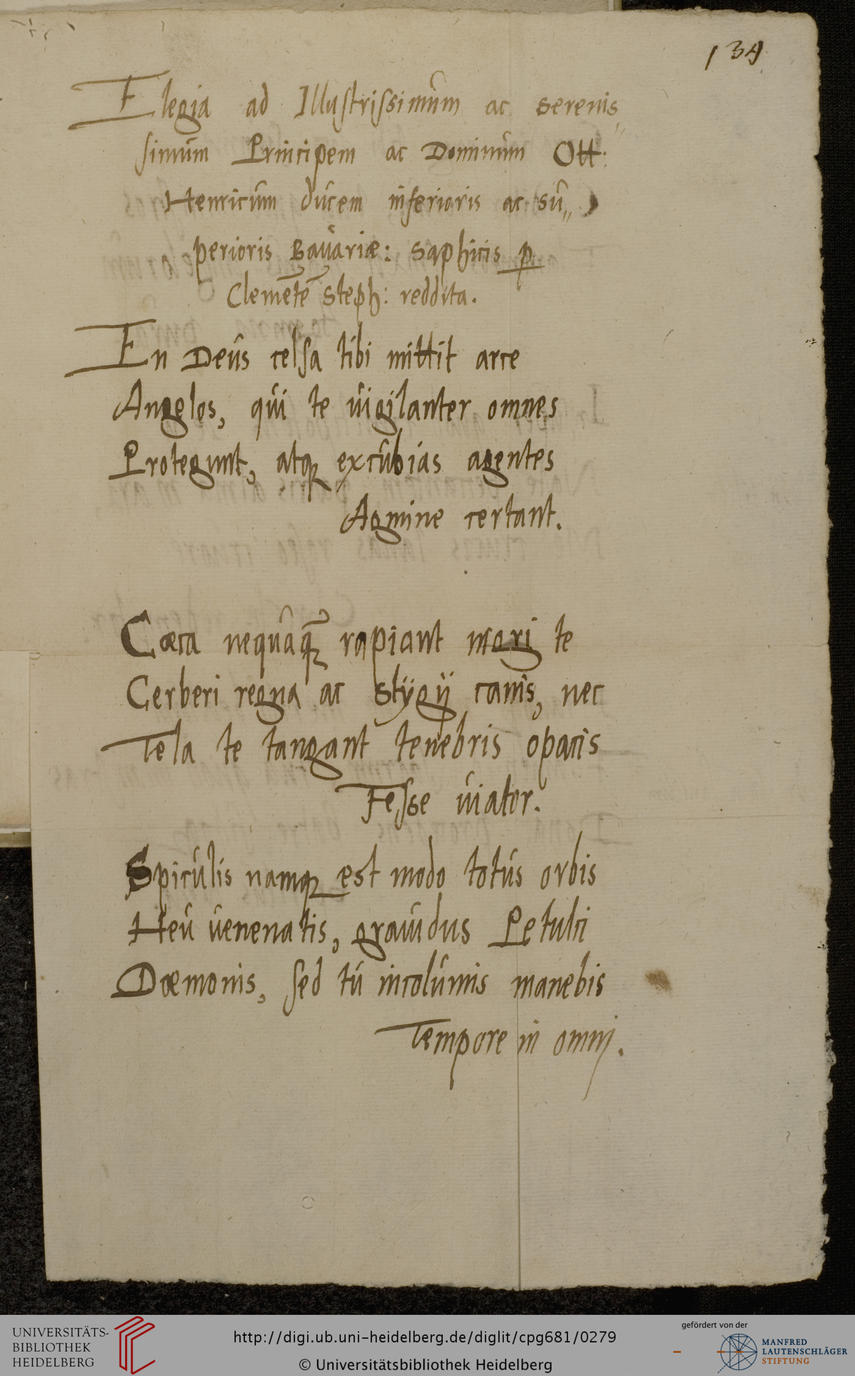 139
Elegia ad Illustrissimum ac Serenis,,
simum Principem ac Dominum Ott:
Henricum ducem inferioris ac su,,
perioris Bavariæ: Saphicis p
Clemẽtẽ Steph: reddita.
En Deus celsa tibi mittit arce
Angelos, qui te vigilanter omnes
Protegunt, atq excubias agentes
Agmine certant.
Cæca nequaq̃ rapiant magi te
Cerberi regna ac Stygij canis, nec
Tela te tangant tenebris opacis
Fesse viator.
Spiculis namq est modo totus orbis
Heu venenatis, gravidus Petulci
Dæmonis, sed tu incolumis manebis
Tempore in omni.
UNIVERSITÄTS-
BIBLIOTHEK
HEIDELBERG
http://digi.ub.uni-heidelberg.de/diglit/cpg681/0279
© Universitätsbibliothek Heidelberg
gefördert von der
MANFRED
LAUTENSCHLÄGER
STIFTUNG